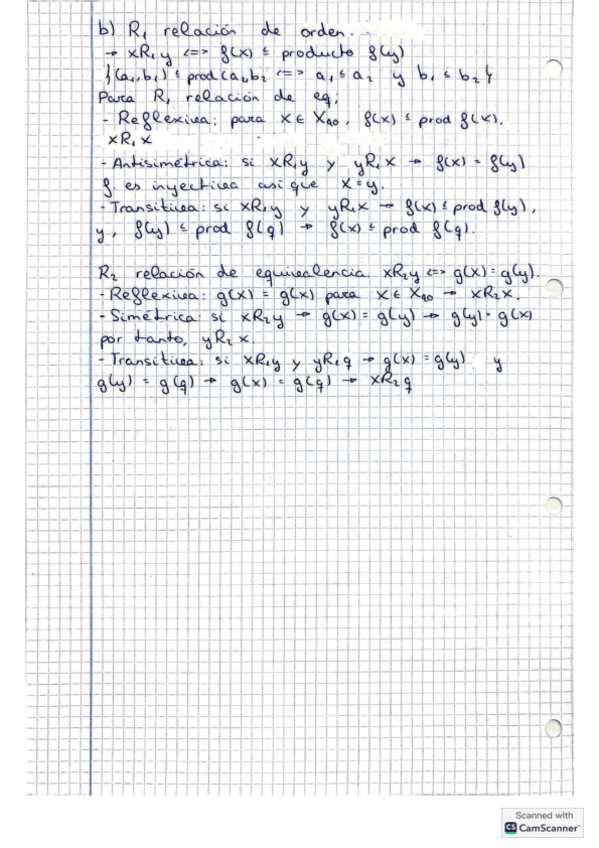 b) R₁ relación de orden.
→ xR₁y <=> f(x) ≤ producto f(y)
{(a₁,b₁) ≤ prod (a₂,b₂ <=> a₁ ≤ a₂ y b₁ ≤ b₂}
Para R₁ relación de eq;
- Reflexiva: para x ∈ X₉₀, f(x) ≤ prod f(x).
xR₁x
- Antisimétrica: si xR₁y y yR₁x → f(x) = f(y)
f es inyectiva así que x = y.
- Transitiva: si xR₁y y yR₁x → f(x) ≤ prod f(y),
y, f(y) ≤ prod f(q) → f(x) ≤ prod f(q).
R₂ relación de equivalencia xR₂y <=> g(x) = g(y).
- Reflexiva: g(x) = g(x) para x ∈ X₉₀ → xR₂x.
- Simétrica: si xR₂y → g(x) = g(y) → g(y) = g(x)
por tanto, yR₂x.
- Transitiva: si xR₂y y yR₂q → g(x) = g(y) y
g(y) = g(q) → g(x) = g(q) → xR₂q
Scanned with
CS CamScanner